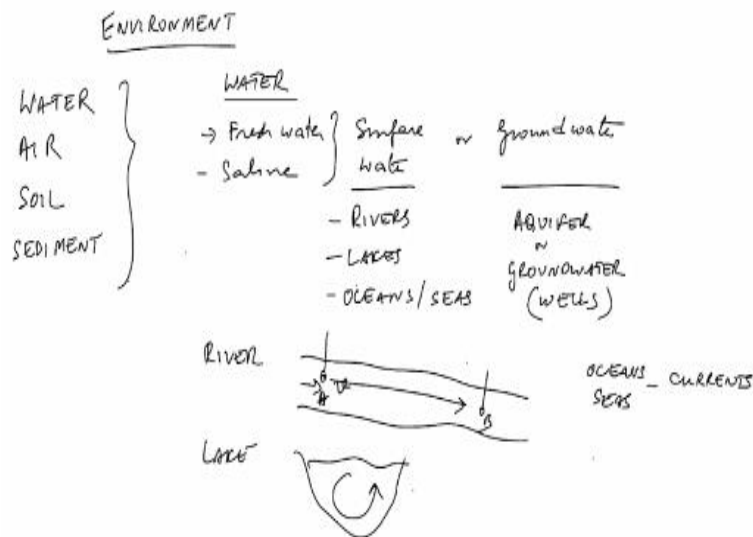 ENVIRONMENT
WATER
AIR
SOIL
SEDIMENT
WATER
→ Fresh water
- Saline
Surface water
or
Groundwater
- RIVERS
- LAKES
- OCEANS/SEAS
AQUIFER
or
GROUNDWATER
(WELLS)
RIVER
A
B
OCEANS - CURRENTS
SEAS
LAKE